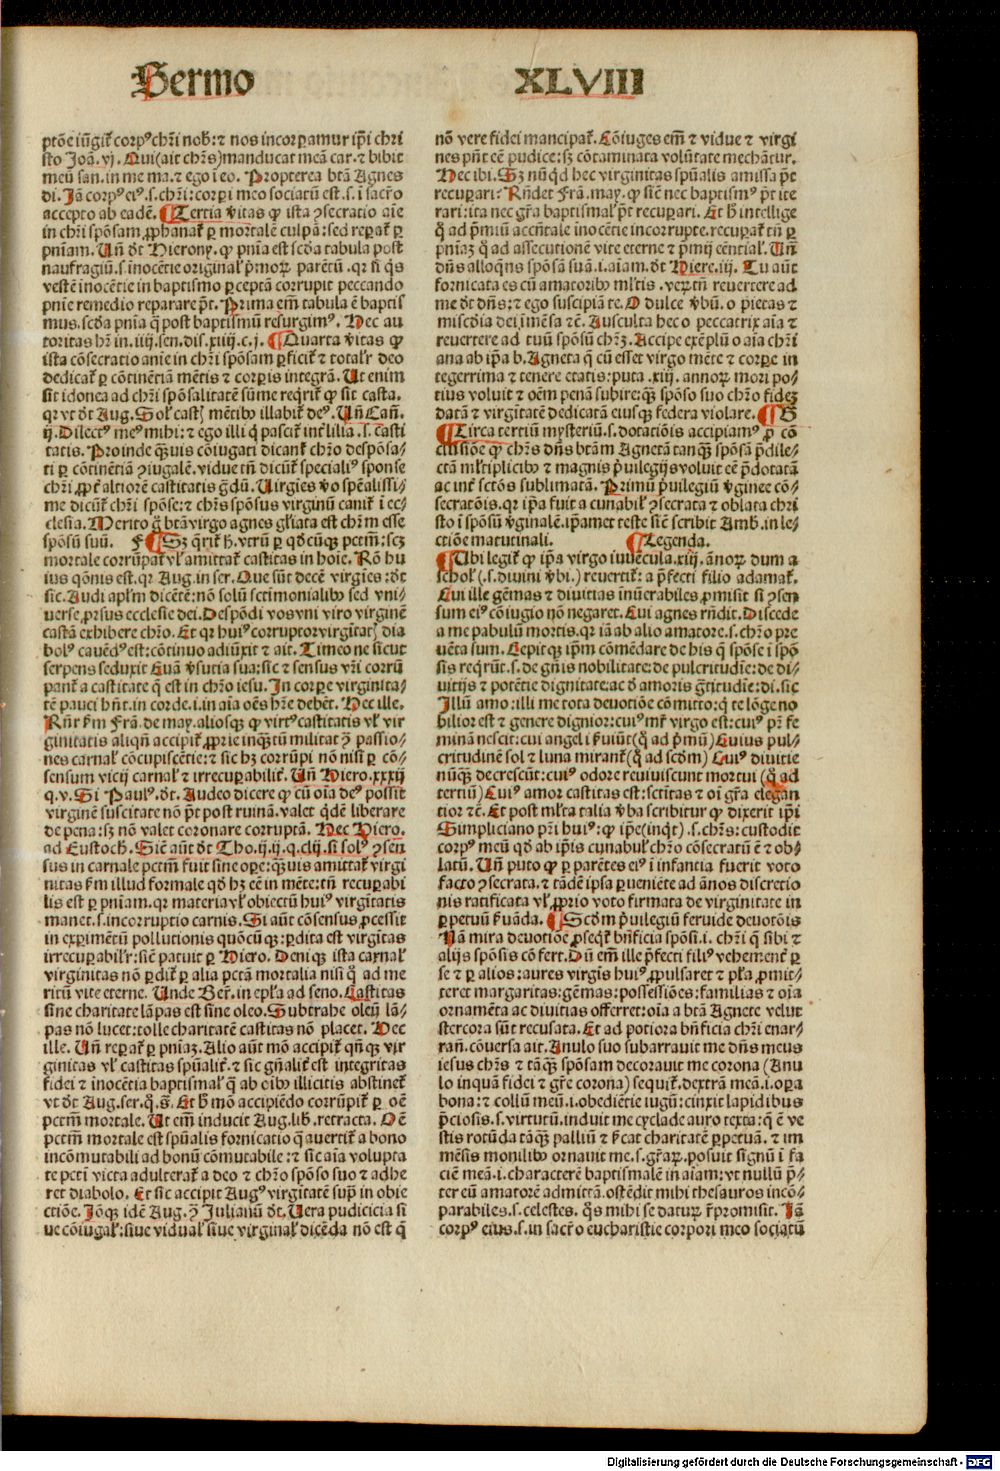 Sermo XLVIII
ptōe iūgit̄ corpꝰ chr̄i nob̄: ⁊ nos incorꝑamur ip̄i chri
sto Joā. vj. Qui (ait chr̄s) manducat meā car. ⁊ bibit
meū san. in me ma. ⁊ ego ī eo. Propterea btā Agnes
di. Jā corpꝰ eiꝰ .s. chr̄i: corꝑi meo sociatū est .s. ī sacr̄o
accepto ab eadē. Tertia v̄itas ꝙ ista ꝯsecratio aīe
in chr̄i spōsam, ꝓphanat̄ ꝑ mortalē culpā: sed reꝑat̄ ꝑ
pn̄iam. Un̄ dt̄ Hierony. ꝙ pn̄ia est scḋa tabula post
naufragiū .s. inocētie original̄ p̄moꝝ parētū. qꝛ si q̄s
vestē inocētie in baptismo ꝑceptā corrupit peccando
pnīe remedio reparare pt̄. Prima em̄ tabula ē baptis
mus. scḋa pn̄ia q̄ post baptismū resurgimꝰ. Hec au
toritas hr̄ in. iiij. sen. dis. xiiij. c. j. Quarta v̄itas ꝙ
ista cōsecratio anīe in chr̄i spōsam ꝑficit̄ ⁊ totalr̄ deo
dedicat̄ ꝑ cōtinētiā mētis ⁊ corꝑis integrā. Ut enim
sit idonea ad chr̄i spōsalitatē sūme req̄rit̄ ꝙ sit casta.
qꝛ vt dt̄ Aug. Sol̄ castꝭ mētibꝰ illabit̄ deꝰ. Un̄ Can̄.
ij. Dilectꝰ meꝰ mihi: ⁊ ego illi q̄ pascit̄ int̄ lilia .s. casti
tatis. Proinde q̄uis coiugati dicant̄ chr̄o despōsa-
ti ꝑ cōtinētiā ꝯiugalē. vidue tn̄ dicūt̄ specialiꝰ sponse
chr̄i, ꝓut̄ altiorē castitatis ḡdū. Uirgīes v̄o spēalissi-
me dicūt̄ chr̄i spōse: ⁊ chr̄s spōsus virginū canit̄ ī ec-
clesia. Merito g̊ btā virgo agnes gl̄iata est chr̄m esse
spōsū suū. F Sꝫ q̄rit̄ h̄. vtrū ꝑ qḋcūqꝫ pctm̄: scꝫ
mortale corrūpat̄ vl̄ amittat̄ castitas in hoīe. Rn̄o hu
ius q̄onis est. qꝛ Aug. in ser. Que sūt decē virgīes: dt̄
sic. Audi apl̄m dicētē: nō solū sctimonialibꝰ sed vni-
uerse, ꝓrsus ecclesie dei. Despōdi vos vni viro virginē
castā exhibere chr̄o. Et qꝛ huiꝰ corruptor virgitatꝭ dia
bolꝰ cauēdꝰ est: cōtinuo adiūxit ⁊ ait. Timeo ne sicut
serpens seduxit Euā v̄sutia sua: sic ⁊ sensus vr̄i corrū
pant̄ a castitate q̄ est in chr̄o iesu. In corꝑe virginita-
tē pauci hn̄t. in corde .i. in aīa oēs hr̄e debēt. Hec ille.
Rn̄r k̄m Frā. de may. aliosqꝫ ꝙ virtꝰ castitatis vl̄ vir
ginitatis aliqn̄ accipit̄, ꝓprie inqʒtū militat ꝯ̄ passio-
nes carnal̄ cōcupiscētie: ⁊ sic hꝫ corrūpi nō nisi ꝑ cō-
sensum vicij carnal̄ ⁊ irrecuꝑabilit̄. Un̄ Hiero. xxxij
q. v. Si Paulꝰ. dt̄. Audeo dicere ꝙ cū oīa deꝰ possit
virginē suscitate nō pt̄ post ruinā. valet q̇dē liberare
de pena: sꝫ nō valet coronare corruptā. Hec Hiero.
ad Eustoch̄. Sic̄ aūt dt̄ Tho. ij. ij. q. clij. si solꝰ ꝯsen
sus in carnale pctm̄ fuit sine oꝑe: q̄uis amittat̄ virgi
nitas k̄m illud formale qḋ hꝫ eē in mēte: tn̄ recuꝑabi
lis est ꝑ pn̄iam. qꝛ materia vl̄ obiectū huiꝰ virgītatis
manet .s. incorruptio carnis. Si aūt cōsensus ꝓcessit
in exꝑimētū pollutionis quōcūqꝫ: ꝑdita est virgītas
irrecuꝑabilr̄: sic̄ patuit ꝑ Hiero. Deniqꝫ ista carnal̄
virginitas nō ꝑdit̄ ꝑ alia pctā mortalia nisi q̊ ad me
ritū vite eterne. Unde Ber̄. in epl̄a ad seno. Castitas
sine charitate lāpas est sine oleo. Subtrahe oleū lā-
pas nō lucet: tolle charitatē castitas nō placet. Hec
ille. Un̄ reꝑat̄ ꝑ pn̄iaꝫ. Alio aūt mō accipit̄ qn̄qꝫ vir
ginitas vl̄ castitas spūalit̄. ⁊ sic gn̄alit̄ est integritas
fidei ⁊ inocētia baptismal̄ q̄ ab oībꝰ illicitis abstinet̄
vt dt̄ Aug. ser. q̊. s̄. Et h̄ mō accipiēdo corrūpit̄ ꝑ oē
pctm̄ mortale. Ut em̄ inducit Aug. lib̄. retracta. Oē
pctm̄ mortale est spūalis fornicatio q̄ auertit̄ a bono
incōmutabili ad bonū cōmutabile: ⁊ sic aīa volupta
te pcti victa adulterat̄ a deo ⁊ chr̄o spōso suo ⁊ adhe
ret diabolo. Et sic accipit Augꝰ virgitatē sup̄ in obie
ctiōe. Jōqꝫ idē Aug. ꝯ̄ Julianū dt̄. Uera pudicicia si
ue cōiugal̄: siue vidual̄ siue virginal̄ dicēda nō est q̄
nō vere fidei mancipat̄. Cōiuges em̄ ⁊ vidue ⁊ virgi
nes pn̄t eē pudice: sꝫ cōtaminata volūtate mechātur.
Hec ibi. Sꝫ nūq̇d hec virginitas spūalis amissa pt̄
recuꝑari: Rn̄det Frā. may. ꝙ sic̄ nec baptismꝰ pt̄ ite
rari: ita nec gr̄a baptismal̄ pt̄ recuꝑari. Et h̄ intellige
q̊ ad p̄miū accn̄tale inocētie incorrupte. recuꝑat̄ tn̄ ꝑ
pn̄iaꝫ q̊ ad assecutionē vite eterne ⁊ p̄mij eēntial̄. Un̄
dn̄s alloq̄ns spōsā suā .i. aīam. dt̄ Hiere. iij. Tu aūt
fornicata es cū amatoribꝰ ml̄tis. veꝝtn̄ reuertere ad
me dt̄ dn̄s: ⁊ ego suscipiā te. O dulce v̄bū. o pietas ⁊
misc̄dia dei īmēsa ⁊c̄. Ausculta hec o peccatrix aīa ⁊
reuertere ad tuū spōsū chr̄ꝫ. Accipe exēplū o aīa chr̄i
ana ab ip̄a b. Agneta q̄ cū esset virgo mēte ⁊ corꝑe in
tegerrima ⁊ tenere etatis: puta. xiij. annoꝝ mori po-
tius voluit ⁊ oēm penā subire: qʒ spōso suo chr̄o fideꝫ
datā ⁊ virgītatē dedicatā eiusqꝫ federa violare. G
Circa tertiū mysteriū .s. dotatiōis accipiamꝰ, ꝓ cō
clusiōe ꝙ chr̄s dn̄s btām Agnetā tanqʒ spōsā p̄dile-
ctā ml̄tiplicibꝰ ⁊ magnis p̄uilegijs voluit eē p̄dotatā
ac int̄ sctōs sublimatā. Primū p̄uilegiū v̄ginee cō-
secratōis. qꝛ ip̄a fuit a cunabil̄ ꝯsecrata ⁊ oblata chri
sto ī spōsū v̄ginalē. ip̄amet teste sic̄ scribit Amb. in le-
ctiōe matutinali. Legenda.
Ubi legit̄ ꝙ ip̄a virgo iuuēcula. xiij. annoꝝ dum a
schol̄ (.s. diuini v̄bi.) reuertit̄: a p̄fecti filio adamat̄.
Cui ille gēmas ⁊ diuitias inūerabiles ꝓmisit si ꝯsen
sum eiꝰ cōiugio nō negaret. Cui agnes rn̄dit. Discede
a me pabulū mortis. qꝛ iā ab alio amatore .s. chr̄o pre
uēta sum. Cepitqꝫ ip̄m cōmēdare de his q̄ spōse ī spō
sis reqr̄ūt .s. de gn̄is nobilitate: de pulcritudīe: de di-
uitijs ⁊ potētie dignitate: ac d̄ amoris ḡtitudīe: di. sic
Illū amo: illi me tota deuotiōe cōmitto: q̄ te lōge no
bilior est ⁊ genere dignior: cuiꝰ mr̄ virgo est: cuiꝰ pr̄ fe
minā nescit: cui angeli s̄uiūt (q̊ ad p̄mū) Cuius pul-
critudinē sol ⁊ luna mirant̄ (q̊ ad scḋm) Cuiꝰ diuitie
nūqʒ decrescūt: cuiꝰ odore reuiuiscunt mortui (q̊ ad
tertiū) Cuiꝰ amor castitas est: sctitas ⁊ oī gr̄a elegan
tior ⁊c̄. Et post ml̄ta talia v̄ba scribitur ꝙ dixerit ip̄i
Simpliciano pr̄i huiꝰ: ꝙ ip̄e (inq̄t) .s. chr̄s: custodit
corpꝰ meū qḋ ab ip̄is cunabul̄ chr̄o cōsecratū ē ⁊ ob-
latū. Un̄ puto ꝙ ꝑ parētes eiꝰ ī infantia fuerit voto
facto ꝯsecrata. ⁊ tādē ip̄sa ꝑueniēte ad ānos discretio
nis ratificata vl̄, ꝓprio voto firmata de virginitate in
ꝑpetuū s̄uāda. Scḋm p̄uilegiū feruide deuotōis
Nā mira deuotiōe, ꝓseqt̄ bn̄ficia spōsi .i. chr̄i q̄ sibi ⁊
alijs spōsis cōfert. Dū em̄ ille p̄fecti filiꝰ vehemēt̄ ꝑ
se ⁊ ꝑ alios: aures virgīs huiꝰ, ꝓpulsaret ⁊ pl̄a, ꝓmit-
teret margaritas: gēmas: possessiōes: familias ⁊ oīa
ornamēta ac diuitias offerret: oīa a btā Agnete velut
stercora sūt recusata. Et ad potiora bn̄ficia chr̄i enar-
ran̄. cōuersa ait. Anulo suo subarrauit me dn̄s meus
iesus chr̄s ⁊ tāqʒ spōsam decorauit me corona (Anu
lo inquā fidei ⁊ gr̄e corona) sequit̄. dextrā meā .i. oꝑa
bona: ⁊ collū meū .i. obediētie iugū: cinxit lapidibus
p̄ciosis .s. virtutū. induit me cyclade auro texta: q̄ ē ve
stis rotūda tāqʒ palliū ⁊ s̄cat charitatē ꝑpetuā. ⁊ im
mēsis monilibꝰ ornauit me .s. gr̄aꝝ. posuit signū ī fa
ciē meā .i. characterē baptismalē in aīam: vt nullū p̄-
ter eū amatorē admittā. ostēdit mihi thesauros incō-
parabiles .s. celestes. q̄s mihi se daturꝰ r̄promisit. Jā
corpꝰ eius .s. in sacr̄o eucharistie corpori meo sociatū
Digitalisierung gefördert durch die Deutsche Forschungsgemeinschaft - DFG